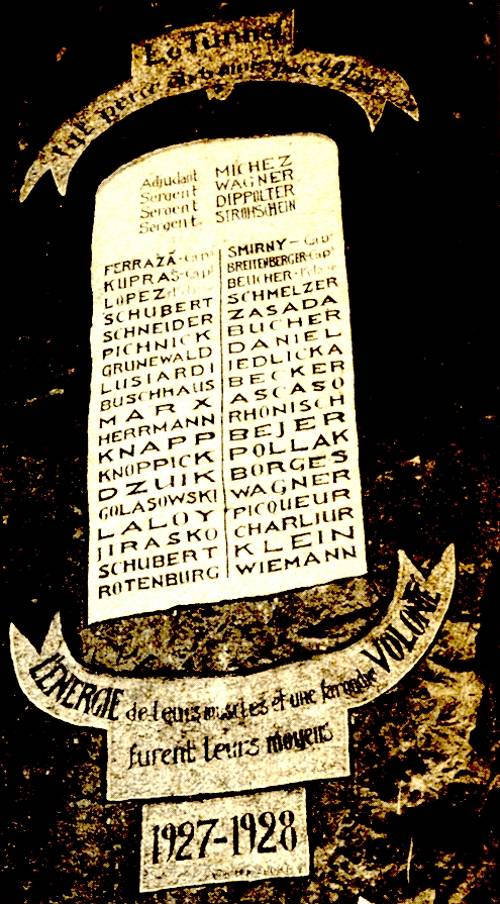 Le Tunnel
fut percé
Adjudant MICHEZ
Sergent WAGNER
Sergent DIPPOLTER
Sergent STROHSCHEIN
FERRAZĂ-Capl
KUPRAS-Capl
LOPEZ
SCHUBERT
SCHNEIDER
PICHNICK
GRUNEWALD
LUSIARDI
BUSCHHAUS
MARX
HERRMANN
KNAPP
KNOPPICK
DZUIK
GOLASOWSKI
LALOY
JIRASKO
SCHUBERT
ROTENBURG
SMIRNY-Capl
BREITENBERGER-Capl
BEUCHER
SCHMELZER
ZASADA
BUCHER
DANIEL
JEDLICKA
BECKER
ASCASO
RHONISCH
BEJER
POLLAK
BORGES
WAGNER
PICQUEUR
CHARLIUR
KLEIN
WIEMANN
L'ENERGIE de leurs muscles et une farouche VOLONTÉ
furent leurs moyens
1927-1928